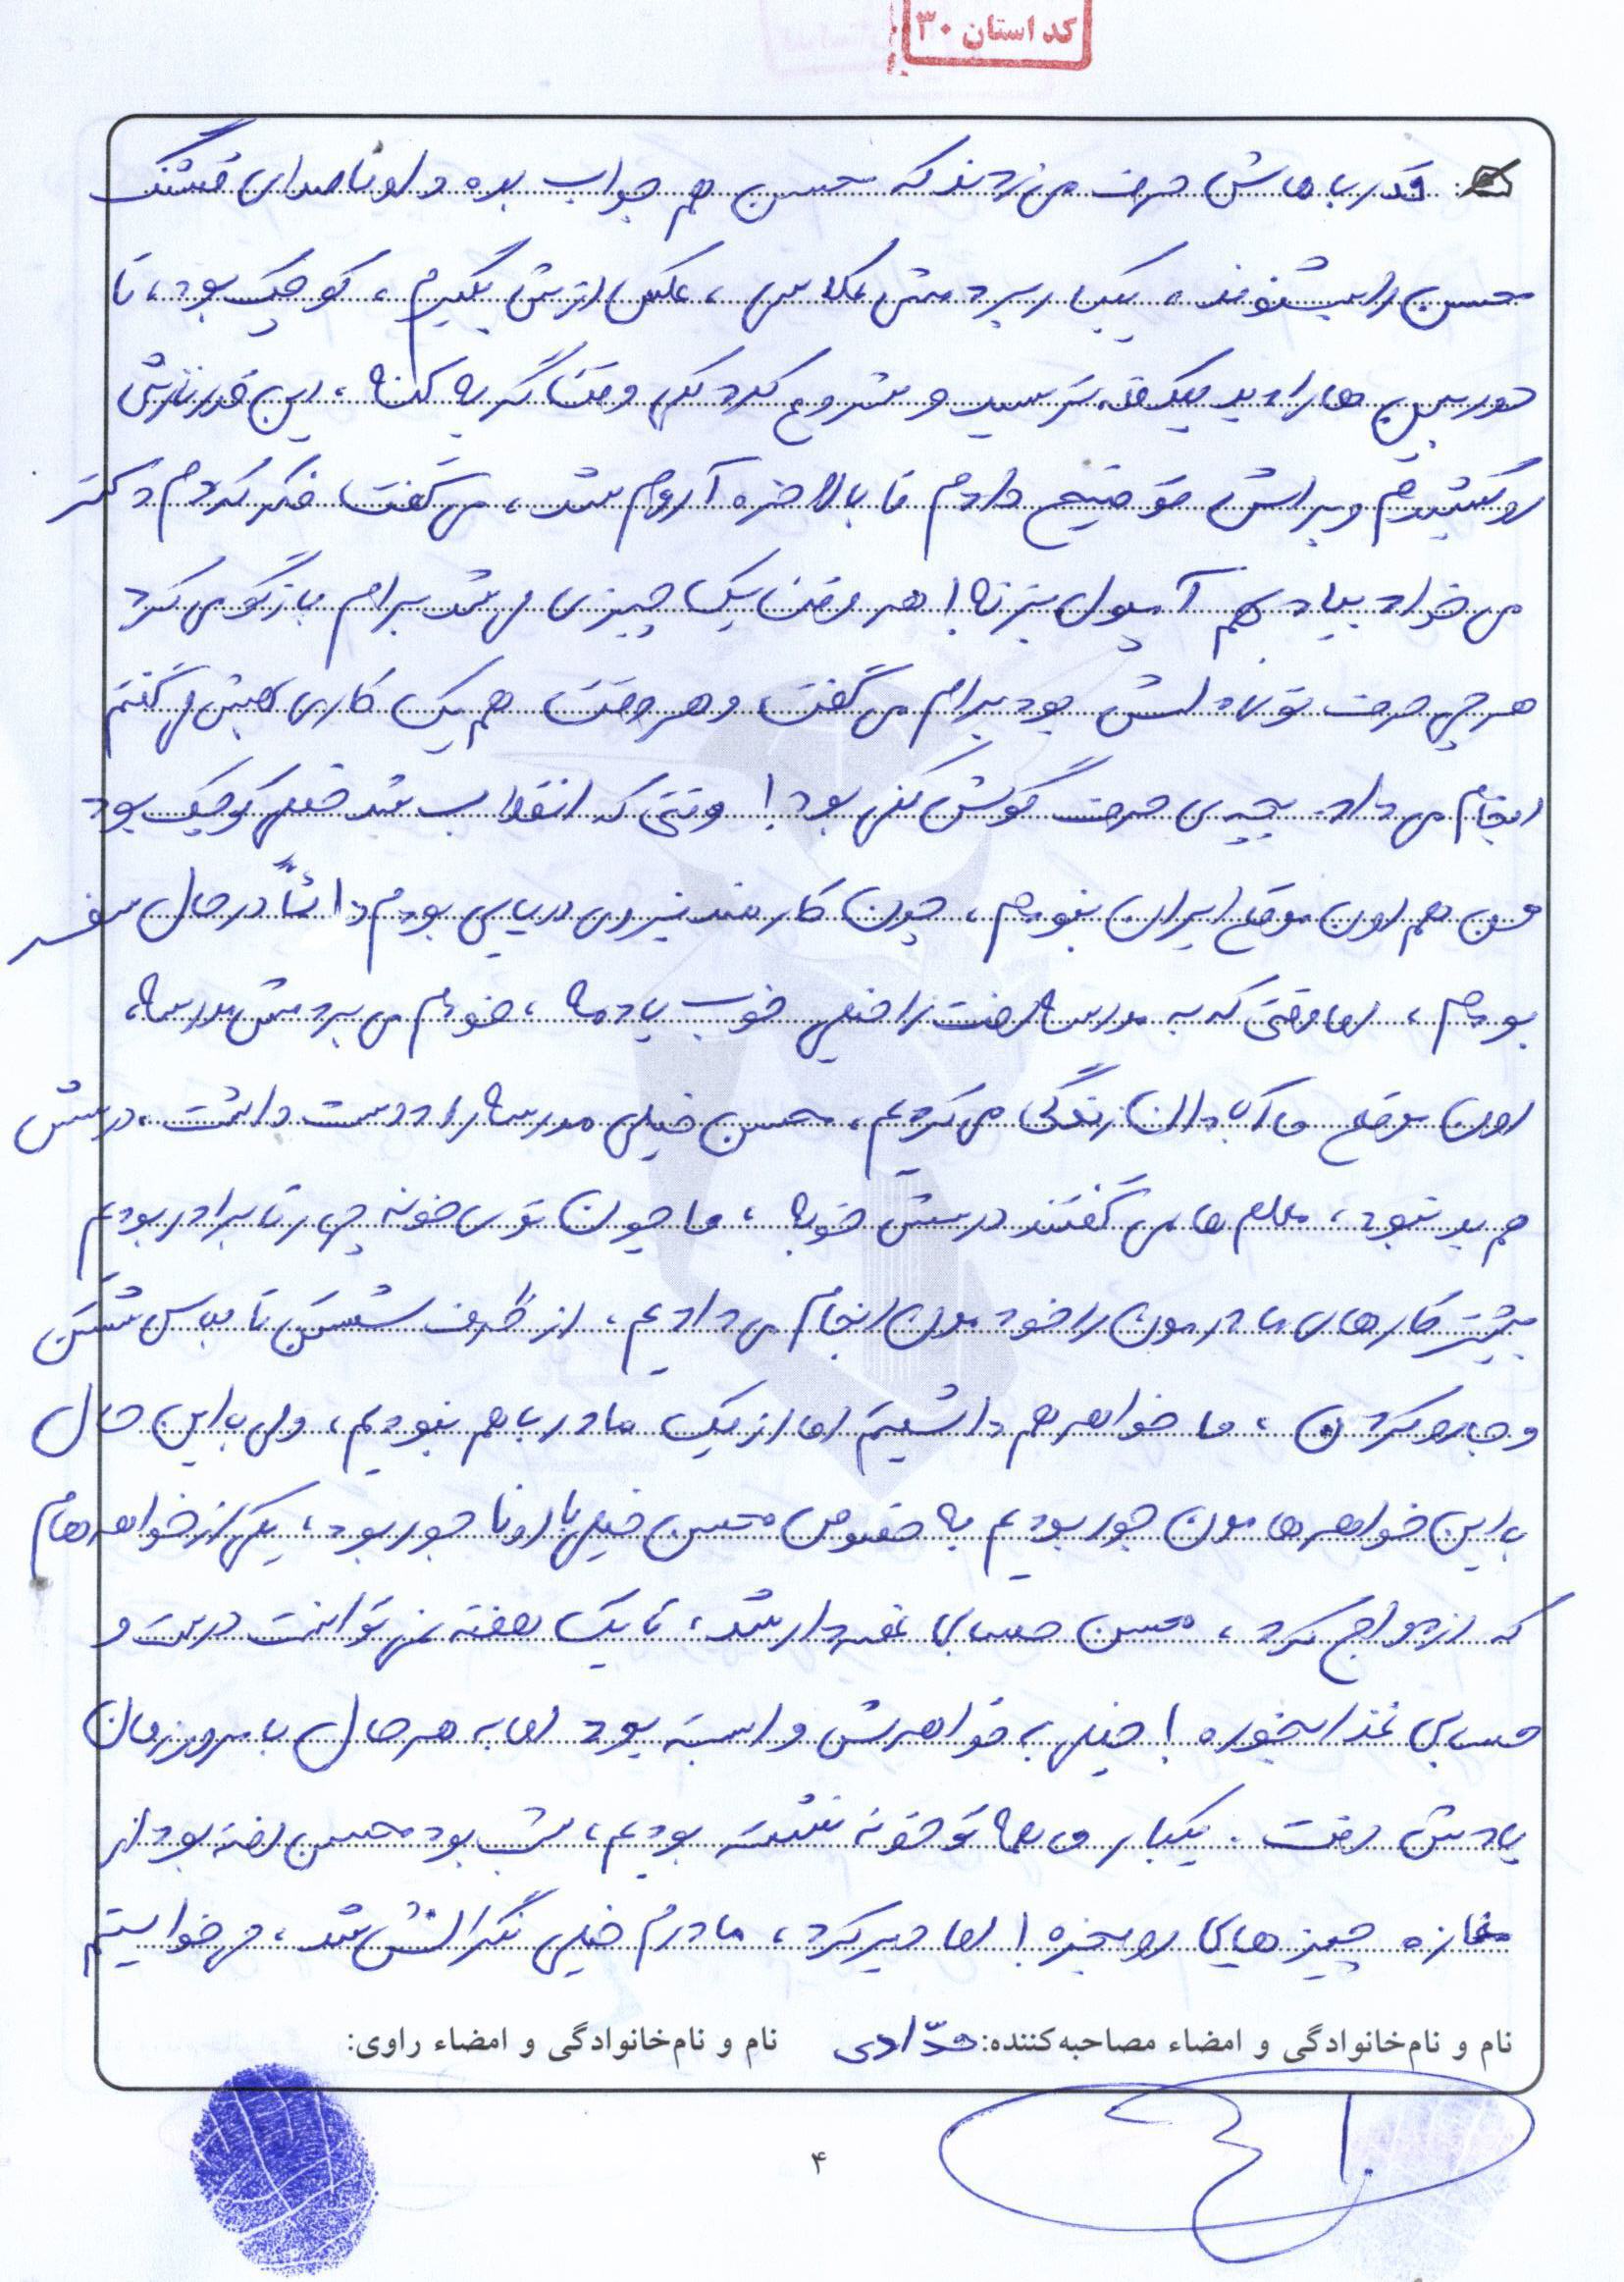 کد استان ۳۰
قدر باهاش حرف می‌زدند که محسن هم جواب بده و اونا صدای قشنگ
محسن را بشنوند، یکبار بردمش عکاسی، عکس ازش بگیرم، کوچیک بود، تا
دوربین‌ها را دید یکدفعه ترسید و شروع کرد یکی وقتا گریه کنه، این قدر نازش
رو کشیدم و براش توضیح دادم تا بالاخره آروم شد، می‌گفت فکر کردم دکتر
می‌خواد بیاد بهم آمپول بزنه! هر وقت یک چیزی می‌شد برام بازگو می‌کرد
هر چی حرف توی دلش بود برام می‌گفت و هر وقت هم یک کاری بهش می‌گفتم
انجام می‌داد. بچه‌ی حرف گوش کنی بود! وقتی که انقلاب شد خیلی کوچیک بود
من هم اون موقع ایران نبودم، چون کارمند نیروی دریایی بودم دائماً در حال سفر
بودم، اما وقتی که به مدرسه رفت را خیلی خوب یادمه، خودم می‌بردمش مدرسه،
اون موقع ما آبادان زندگی می‌کردیم، محسن خیلی مدرسه را دوست داشت، درسش
هم بد نبود، معلم‌ها می‌گفتند درسش خوبه، ما چون توی خونه چهار تا برادر بودیم
بیشتر کارهای مادرمون را خودمون انجام می‌دادیم، از ظرف شستن تا لباس شستن
و جارو کردن، ما خواهر هم داشتیم اما از یک مادر باهم نبودیم، ولی با این حال
با این خواهرهامون جور بودیم به خصوص محسن خیلی با اونا جور بود، یکی از خواهرهام
که ازدواج کرد، محسن حسابی غصه‌دار شد، تا یک هفته نمی‌توانست درست و
حسابی غذا بخوره! خیلی به خواهرش وابسته بود اما به هر حال با مرور زمان
یادش رفت. یکبار ما همه تو خونه نشسته بودیم، شب بود محسن رفته بود از
مغازه چیزهایی رو بخره! اما دیر کرد، مادرم خیلی نگرانش شد، می‌خواستیم
نام و نام‌خانوادگی و امضاء مصاحبه‌کننده: حدّادی نام و نام‌خانوادگی و امضاء راوی:
۴